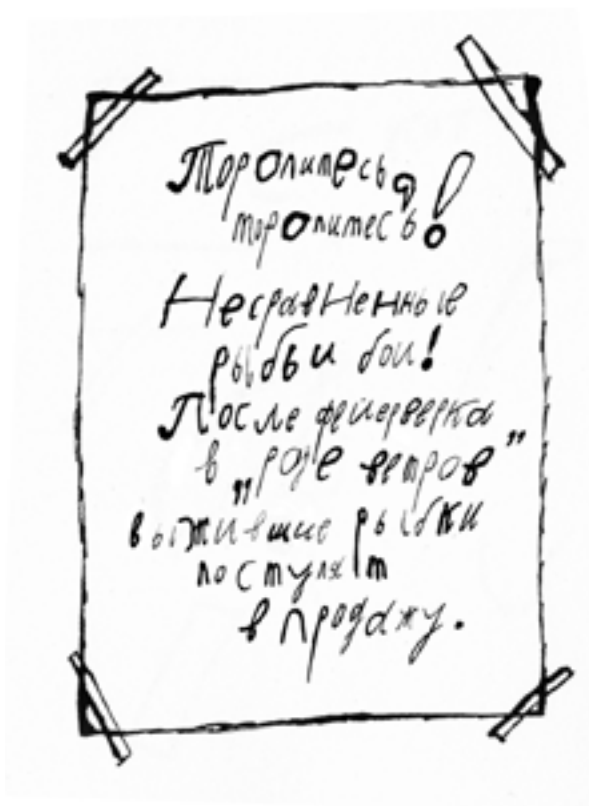 Торопитесь,
торопитесь!
Несравненные
рыбьи бои!
После фейерверка
в „розе ветров”
выжившие рыбки
поступят
в продажу.